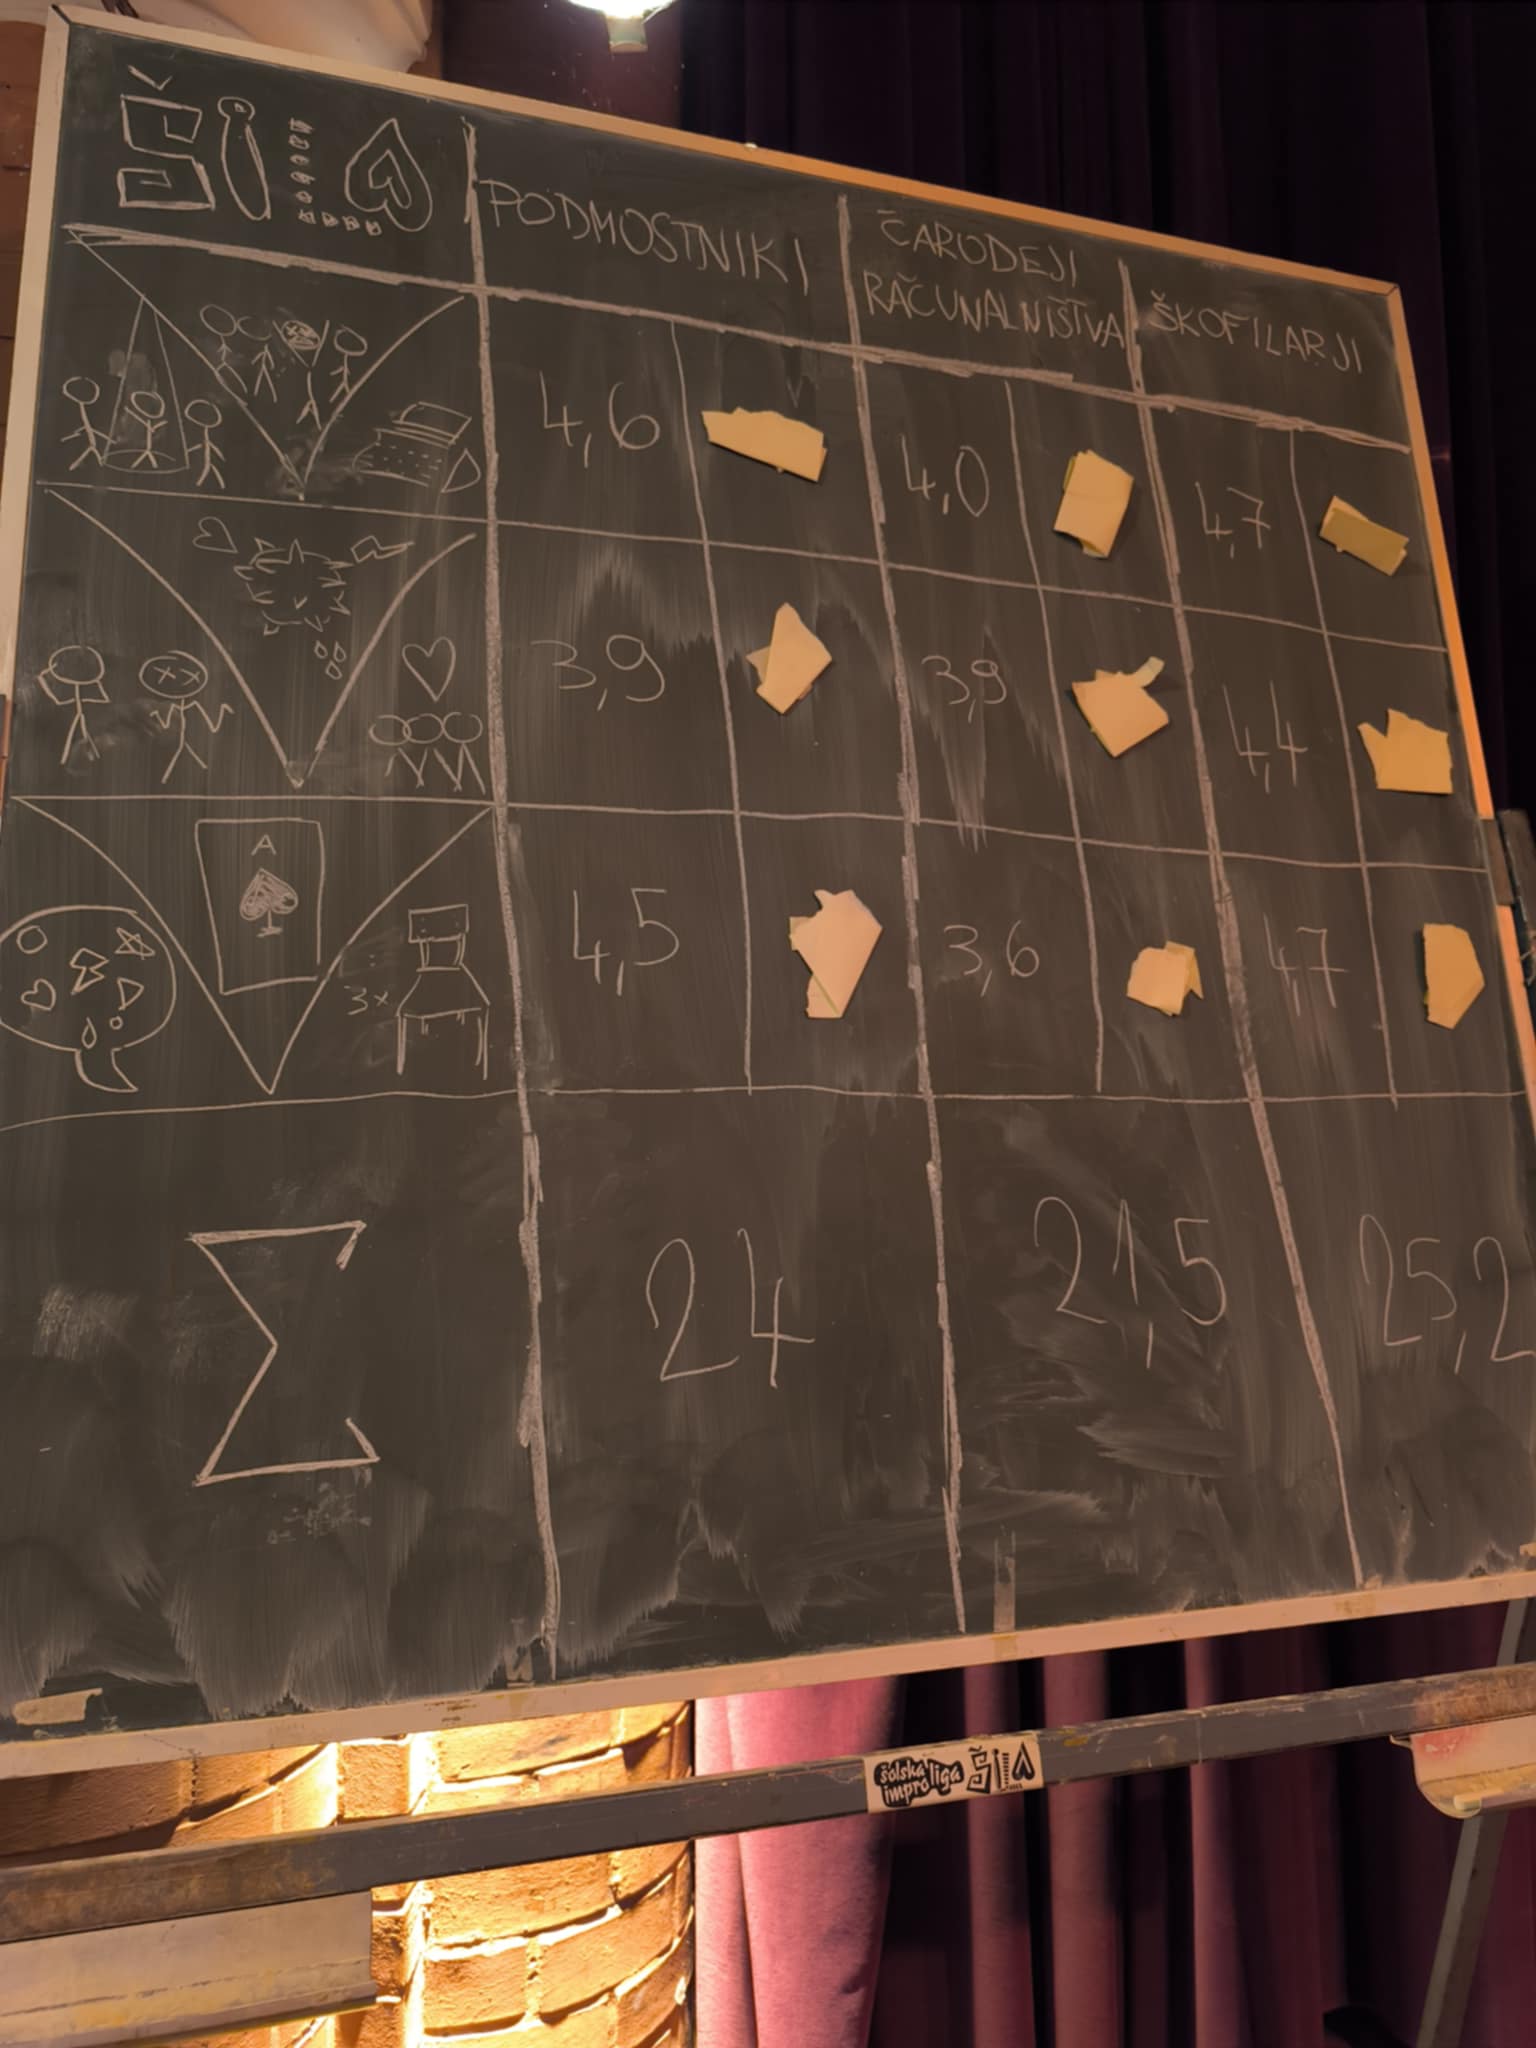 ŠILA
PODMOSTNIKI
ČARODEJI
RAČUNALNIŠTVA
ŠKOFILARJI
4,6
4,0
4,7
3,9
3,9
4,4
A
3x
4,5
3,6
4,7
Σ
24
21,5
25,2
šolska
impro liga
ŠILA